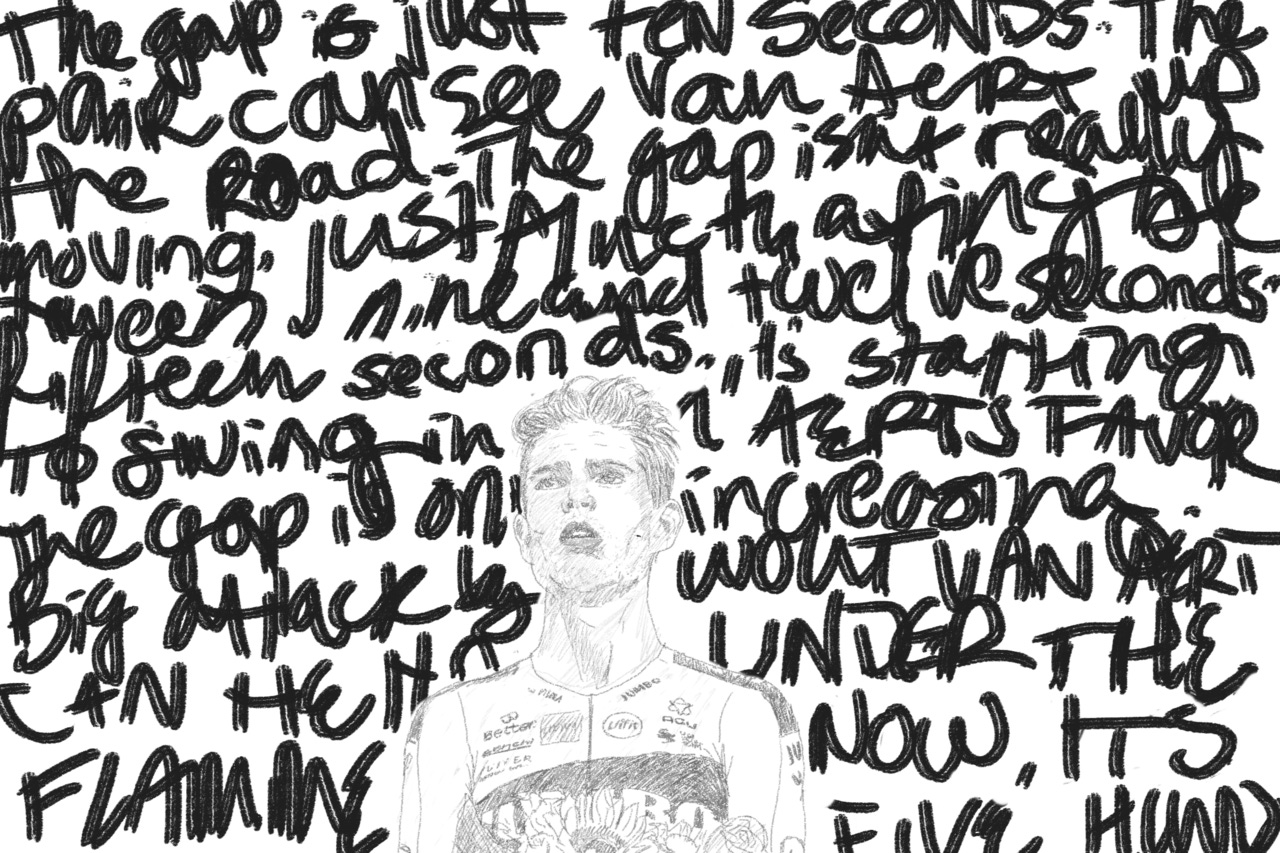 The gap is just ten seconds. The
pair can see Van Aert up
the road. The gap isn't really
moving, just fluctuating be
tween nine and twelve seconds.
fifteen seconds. It's starting
to swing in AERTS FAVOR
The gap is on increasing.
Big attack by WOUT VAN AERT
CAN HE UNDER THE
FLAMME NOW, ITS
FIVE HUND
JUMBO
Better
AGU